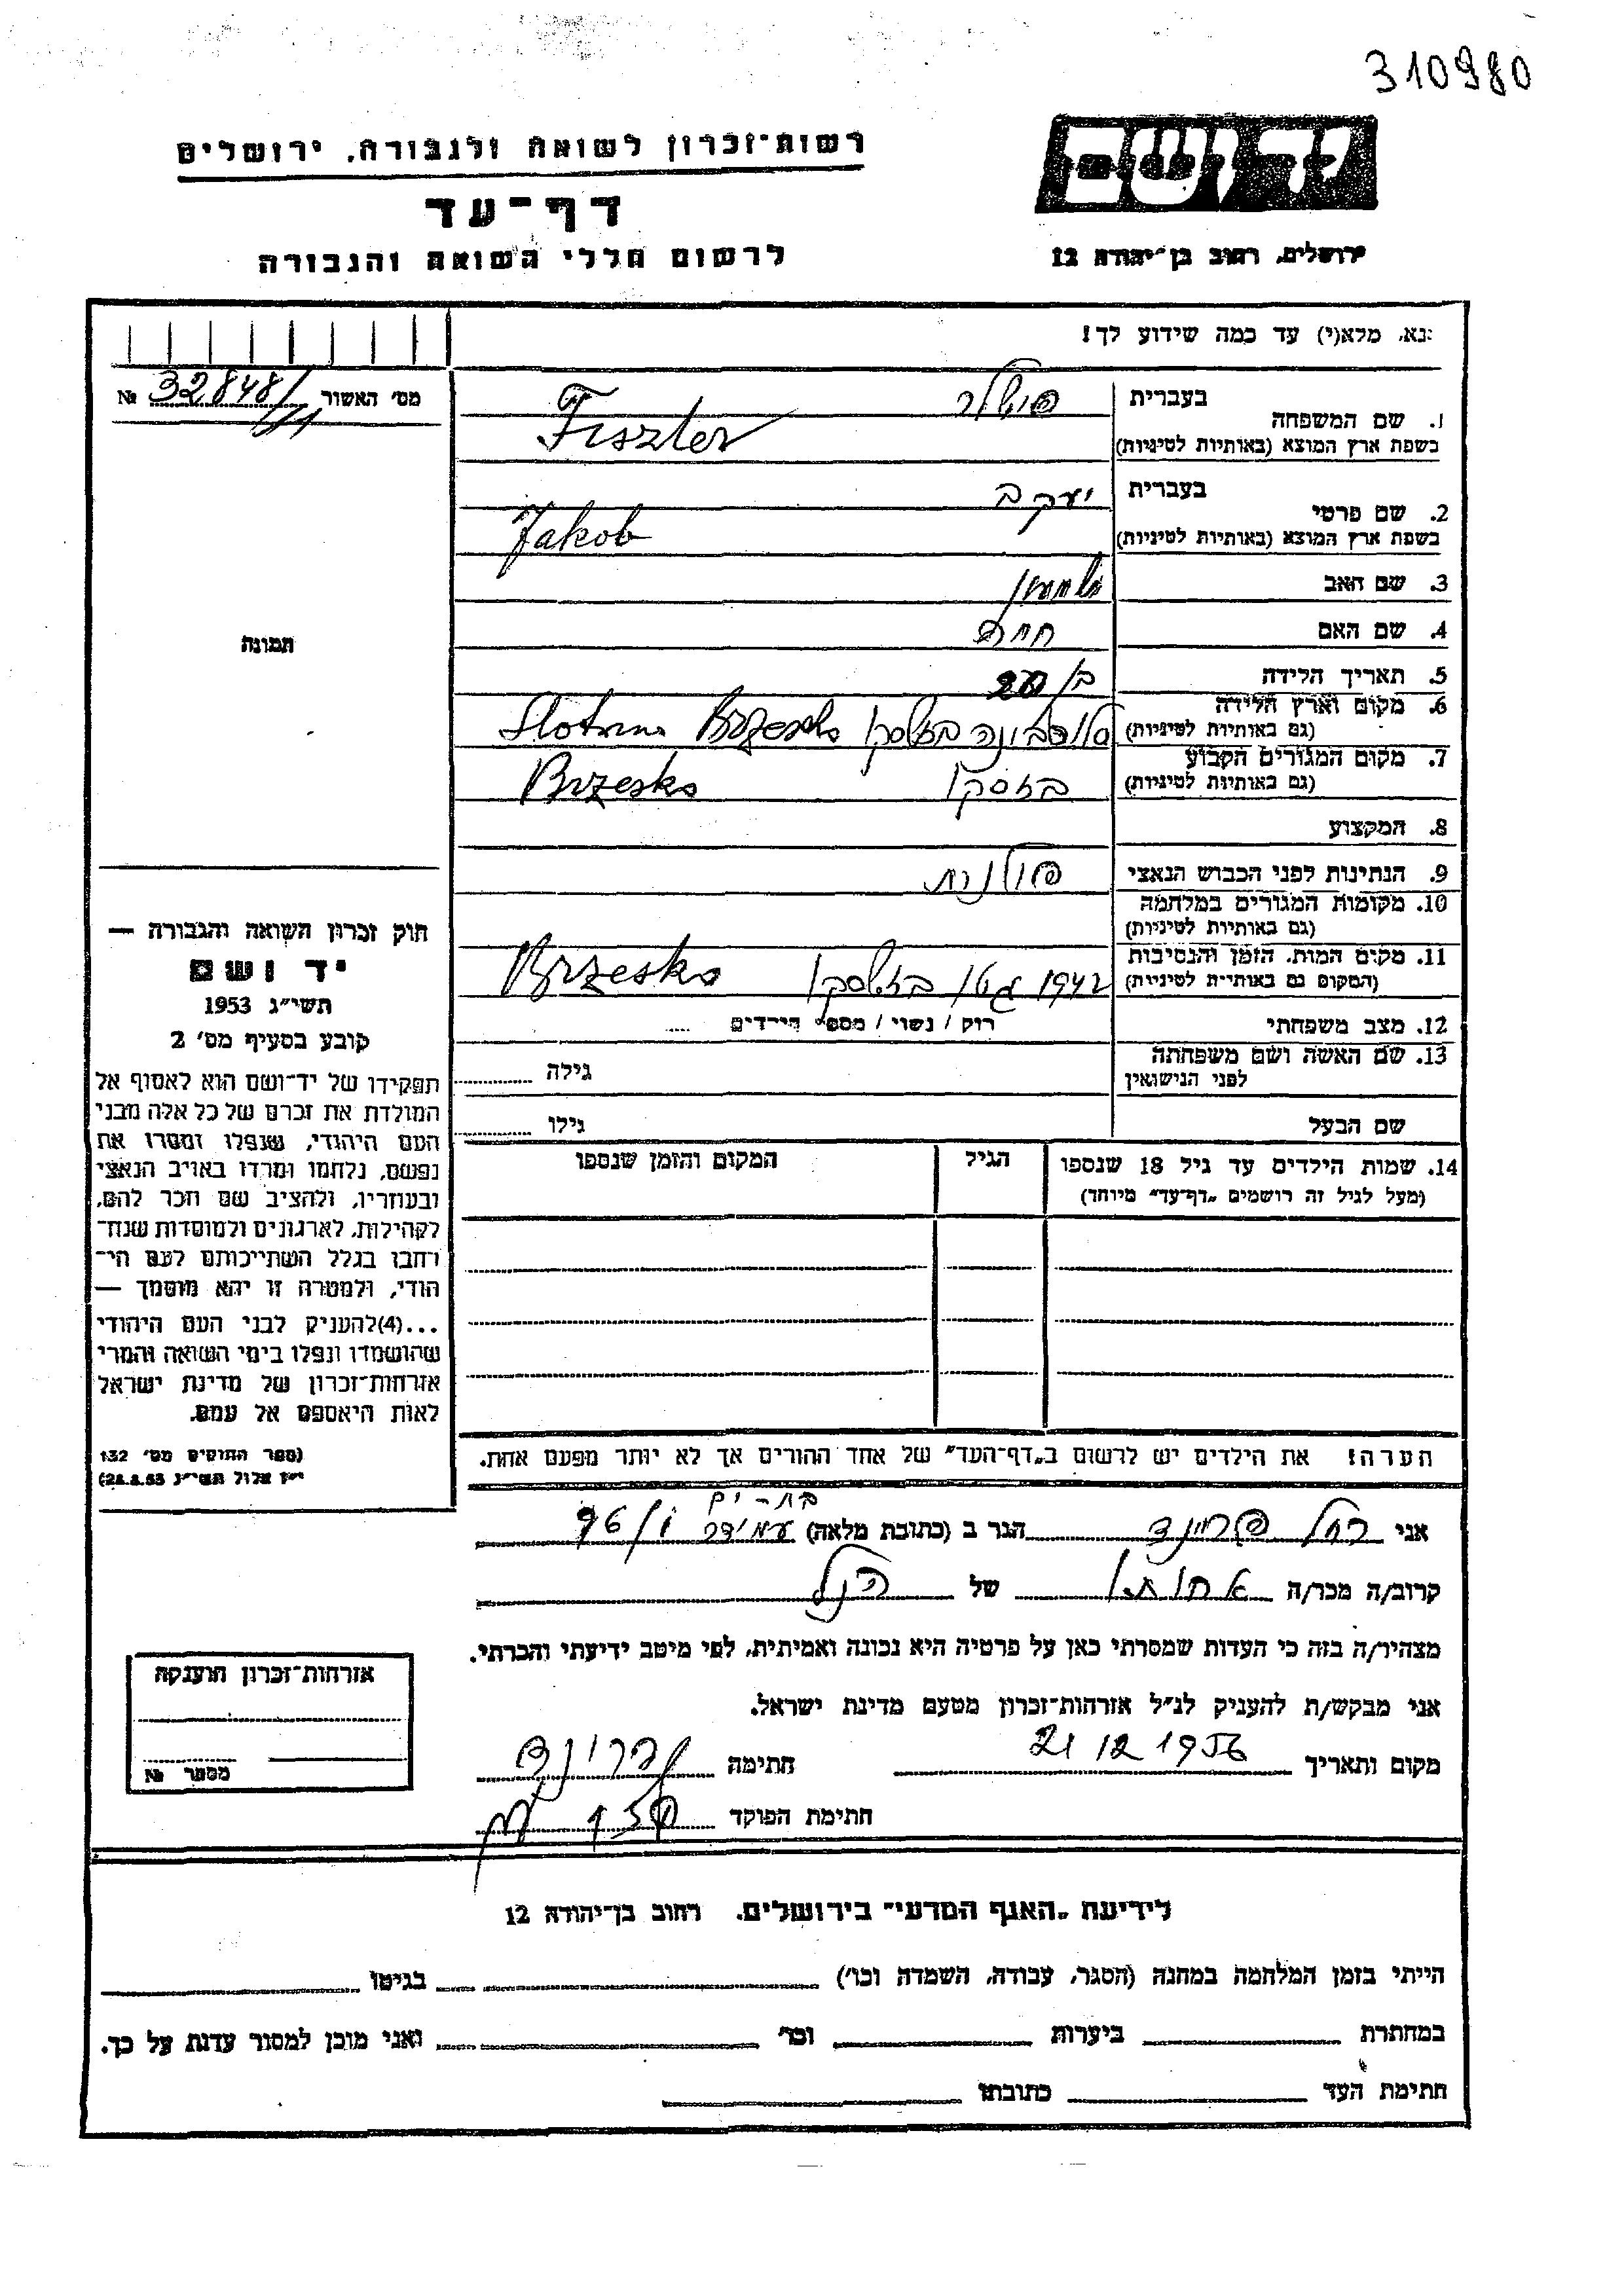 310980
יד ושם
רשות־זכרון לשואה ולגבורה, ירושלים
דף־עד
לרשום חללי השואה והגבורה
ירושלים, רחוב בן־יהודה 12
נא, מלא(י) עד כמה שידוע לך!
מס׳ האשור № 32848/
1. שם המשפחה
בעברית פישלר
בשפת ארץ המוצא (באותיות לטיניות) Fiszler
2. שם פרטי
בעברית יעקב
בשפת ארץ המוצא (באותיות לטיניות) Jakob
3. שם האב
4. שם האם
תמונה
5. תאריך הלידה ב/
6. מקום וארץ הלידה
(גם באותיות לטיניות) Brzesko
7. מקום המגורים הקבוע
(גם באותיות לטיניות) בזסקו Brzesko
8. המקצוע
9. הנתינות לפני הכבוש הנאצי פולנית
10. מקומות המגורים במלחמה
(גם באותיות לטיניות)
11. מקום המות, הזמן והנסיבות
(המקום גם באותיות לטיניות) 1942 גטו Brzesko
12. מצב משפחתי רוק / נשוי / מספר הילדים ....
13. שם האשה ושם משפחתה
לפני הנישואין גילה
שם הבעל גילו
14. שמות הילדים עד גיל 18 שנספו
(מעל לגיל זה רושמים „דף־עד״ מיוחד)
הגיל
המקום והזמן שנספו
חוק זכרון השואה והגבורה —
יד ושם
תשי״ג 1953
קובע בסעיף מס׳ 2
תפקידו של יד־ושם הוא לאסוף אל
המולדת את זכרם של כל אלה מבני
העם היהודי, שנפלו ומסרו את
נפשם, נלחמו ומרדו באויב הנאצי
ובעוזריו, ולהציב שם וזכר להם,
לקהילות, לארגונים ולמוסדות שנח־
רבו בגלל השתייכותם לעם הי־
הודי, ולמטרה זו יהא מוסמך —
...(4)להעניק לבני העם היהודי
שהושמדו ונפלו בימי השואה והמרי
אזרחות־זכרון של מדינת ישראל
לאות היאספם אל עמם.
(ספר החוקים מס׳ 132
י״ז אלול תשי״ג 28.8.53)
הערה! את הילדים יש לרשום ב„דף־העד״ של אחד ההורים אך לא יותר מפעם אחת.
בת-ים
אני רחל פריינד הגר ב (כתובת מלאה) עמידר 96/
קרוב/ה מכר/ה אחותו של הנ״ל
מצהיר/ה בזה כי העדות שמסרתי כאן על פרטיה היא נכונה ואמיתית, לפי מיטב ידיעתי והכרתי.
אני מבקש/ת להעניק לנ״ל אזרחות־זכרון מטעם מדינת ישראל.
מקום ותאריך 21 12 1956 חתימה
חתימת הפוקד
אזרחות־זכרון הוענקה
מספר №
לידיעת „האגף המדעי״ בירושלים, רחוב בן־יהודה 12
הייתי בזמן המלחמה במחנה (הסגר, עבודה, השמדה וכו׳) בגיטו
במחתרת ביערות וכו׳ ואני מוכן למסור עדות על כך.
חתימת העד כתובתו